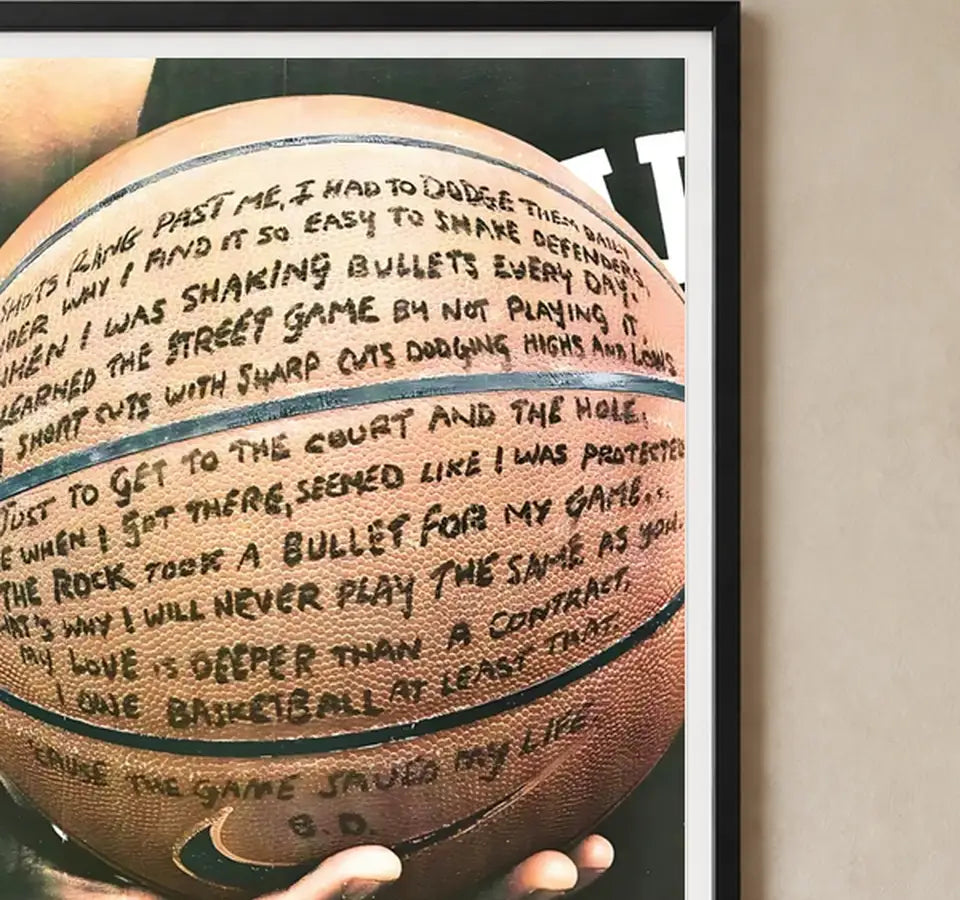 SHOTS RANG PAST ME, I HAD TO DODGE THEM DAILY
DER WHY I FIND IT SO EASY TO SHAKE DEFENDERS,
WHEN I WAS SHAKING BULLETS EVERY DAY.
LEARNED THE STREET GAME BY NOT PLAYING IT
SHORT CUTS WITH SHARP CUTS DODGING HIGHS AND LOWS
JUST TO GET TO THE COURT AND THE HOLE,
E WHEN I GOT THERE, SEEMED LIKE I WAS PROTECTED
THE ROCK TOOK A BULLET FOR MY GAME...
HAT'S WHY I WILL NEVER PLAY THE SAME AS YOU.
MY LOVE IS DEEPER THAN A CONTRACT,
I OWE BASKETBALL AT LEAST THAT.
'CAUSE THE GAME SAVED MY LIFE.
B.D.